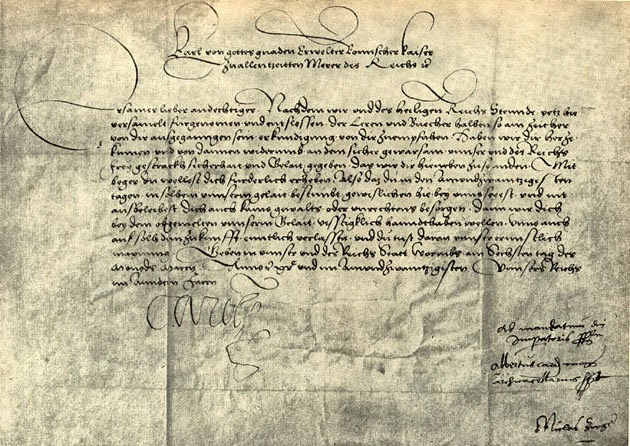 Karl von gottes gnaden Erwelter Romischer Kaiser
Zu allen tzeitten Merer des Reichs ꝛc
Ersamer lieber andechtiger. Nachdem wir und des heiligen Reichs Stennde, yetz hie
versamelt furgenomen und entslossen der Leren und Buecher halben, so ain Zeither
von dir ausgegangen sein, erkundigung von dir zuempfahen. Haben wir dir herzu
kumen und von dannen widerumb an dein sicher gewarsam unser und des Reichs
frey gestracks sicherhait und Glait gegeben, das wir dir hieneben zusenden. Mit
beger du wellest dich furderlich erheben, Also das du in den Ainundzwaintzigisten
tagen in solhem unserm glait bestimbt gewislichen hie bey unns seyest, und nit
aussenbleibest, Dich auch kains gewalts oder unrechtens besorgen. Dann wir dich
bey dem obgemelten unserm Glait vesstigklich hanndthaben wellen. Unns auch
auf solh dein zukunfft enntlich verlassen, und du tust daran unser ernnstlich
maynung. Geben in unser und des Reichs Statt Wormbs am Sechsten tag des
Monets Marcy Anno ꝛc und im Ainundzwaintzigisten Unsers Reichs
im Anndern Jaren
Carolus
Ad mandatum dni
Imperatoris
Albertus card mog
archicancellarius
Niclas